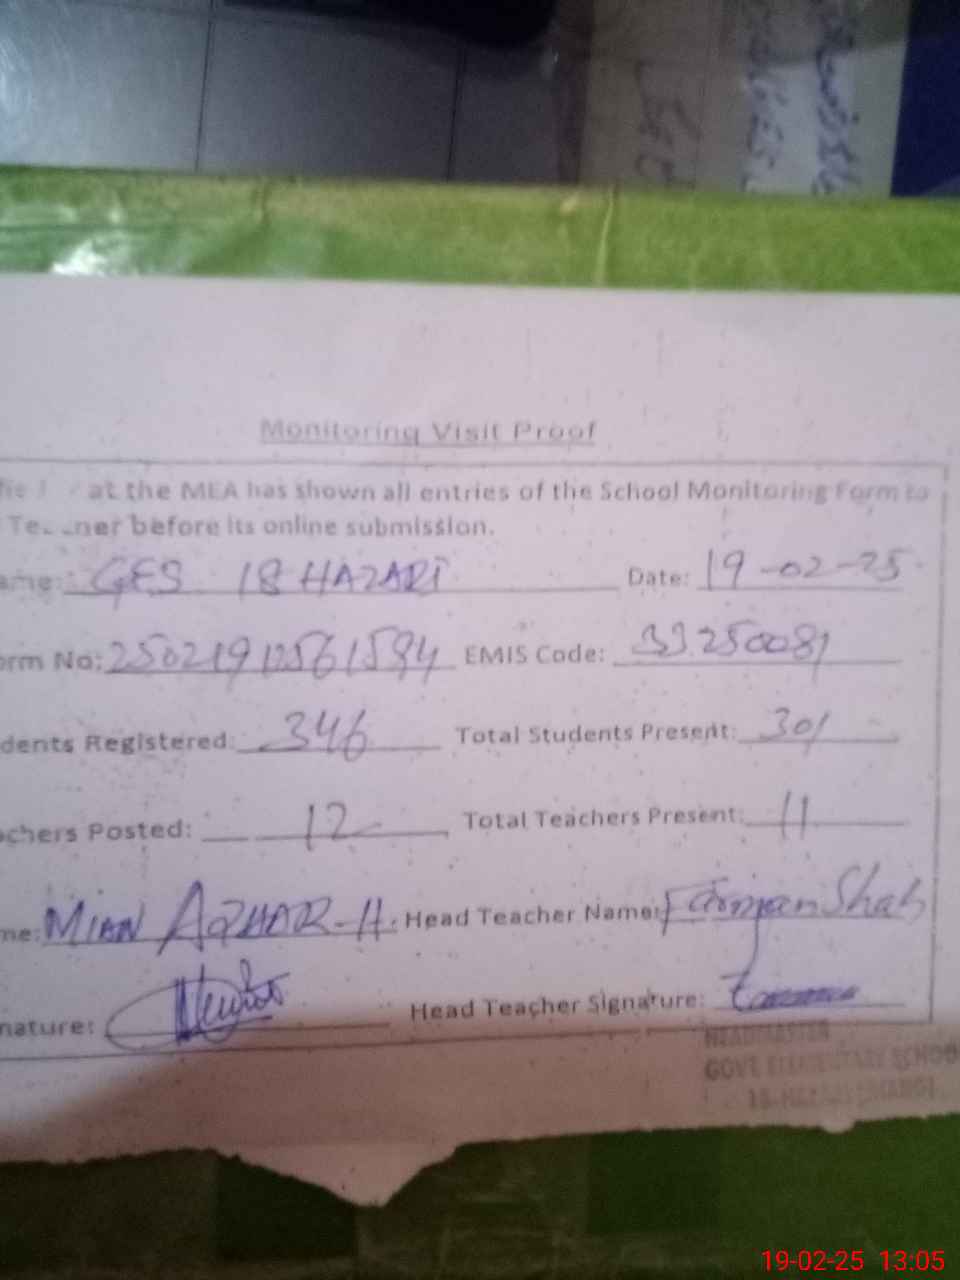 Monitoring Visit Proof
at the MEA has shown all entries of the School Monitoring Form to
before its online submission.
ame: GES 18 HAZARI Date: 19-02-25
orm No: 25021912561594 EMIS Code: 33250081
dents Registered: 346 Total Students Present: 301
achers Posted: 12 Total Teachers Present: 11
me: MIAN AZHAR-H. Head Teacher Name: Farman Shah
nature: Head Teacher Signature:
HEADMASTER
GOVT ELEMENTARY SCHOO
18-HAZARI (JHANG)
19-02-25 13:05